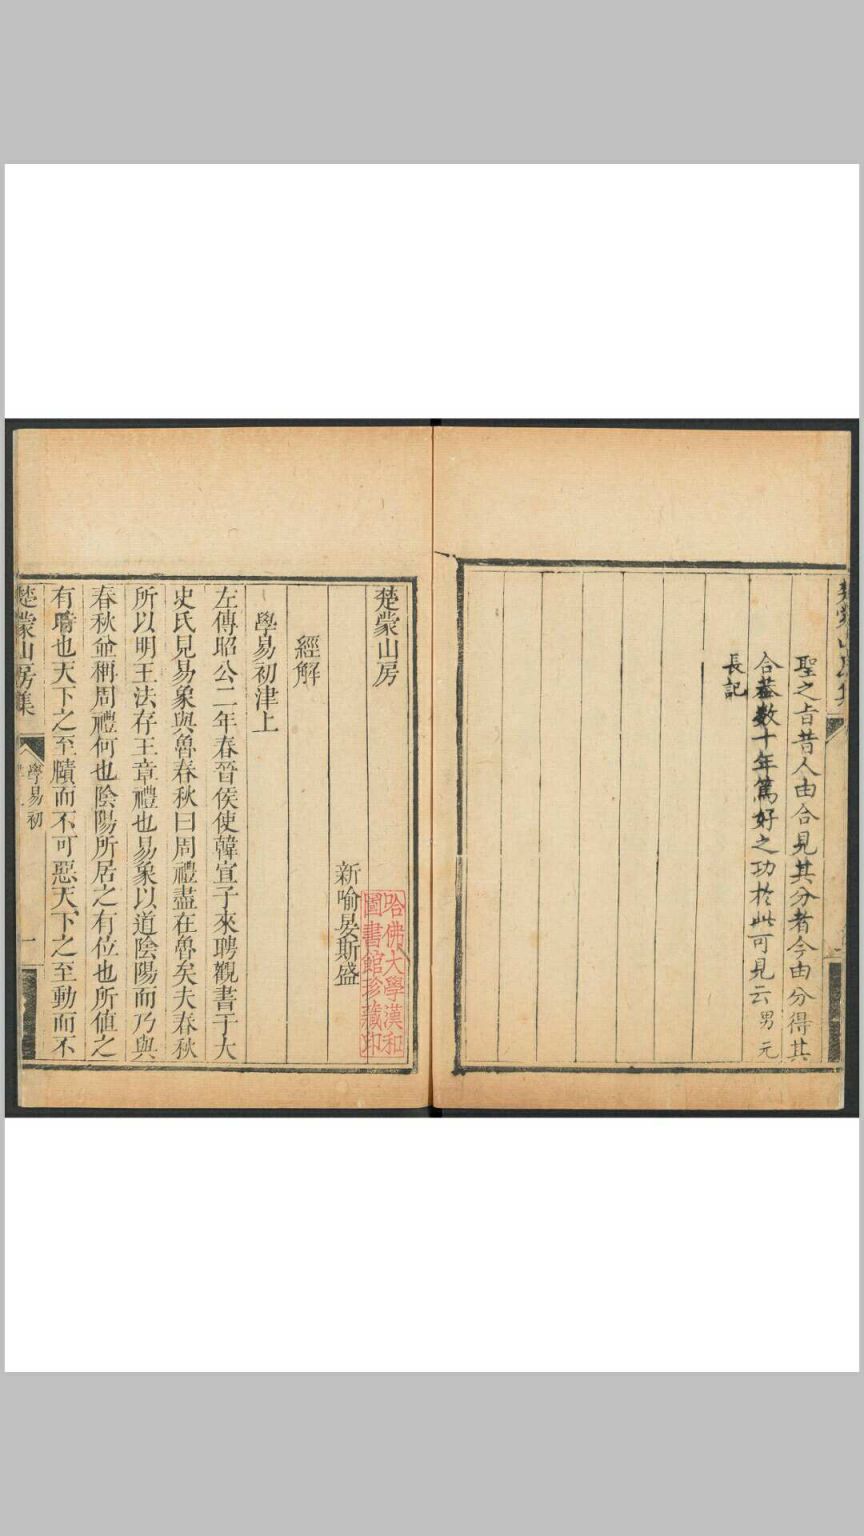 聖之旨昔人由合見其分者今由分得其
合葢数十年篤好之功於此可見云男元
長記
楚蒙山房
新喻晏斯盛
哈佛大學漢和
圖書館珍藏印
經解
學易初津上
左傳昭公二年春晉侯使韓宣子來聘觀書于大
史氏見易象與魯春秋曰周禮盡在魯矣夫春秋
所以明王法存王章禮也易象以道陰陽而乃與
春秋並稱周禮何也陰陽所居之有位也所值之
有時也天下之至賾而不可惡天下之至動而不
楚蒙山房集
學易初
一